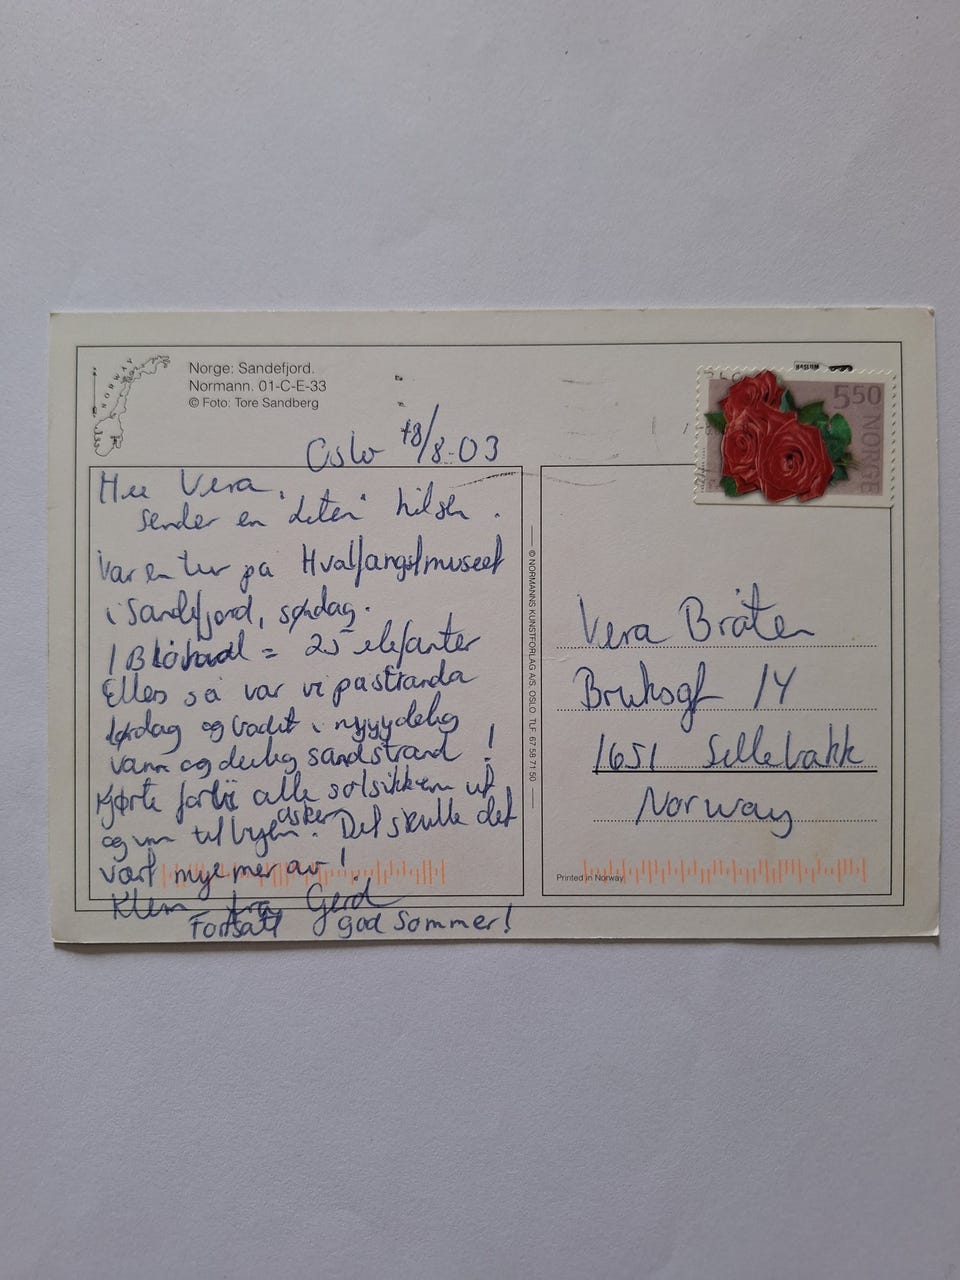 NORWAY
Norge: Sandefjord.
Normann. 01-C-E-33
© Foto: Tore Sandberg
Oslo 18/8-03
550 NORGE
Vera.
sender en liten hilsen.
Var en tur på Hvalfangstmuseet
i Sandefjord, søndag.
1 Blåhval = 25 elefanter
Ellers så var vi på stranda
lørdag og badet i nyyydelig
vann og deilig sandstrand!
Kjørte forbi alle solsikkene ut
asker
og inn til byen. Det skulle det
vært mye mer av!
Klem fra Gerd
Fortsatt god sommer!
© NORMANNS KUNSTFORLAG A/S, OSLO TLF. 67 58 71 50
Vera Bråten
Bruksgt 14
1651 Sellebakk
Norway
Printed in Norway